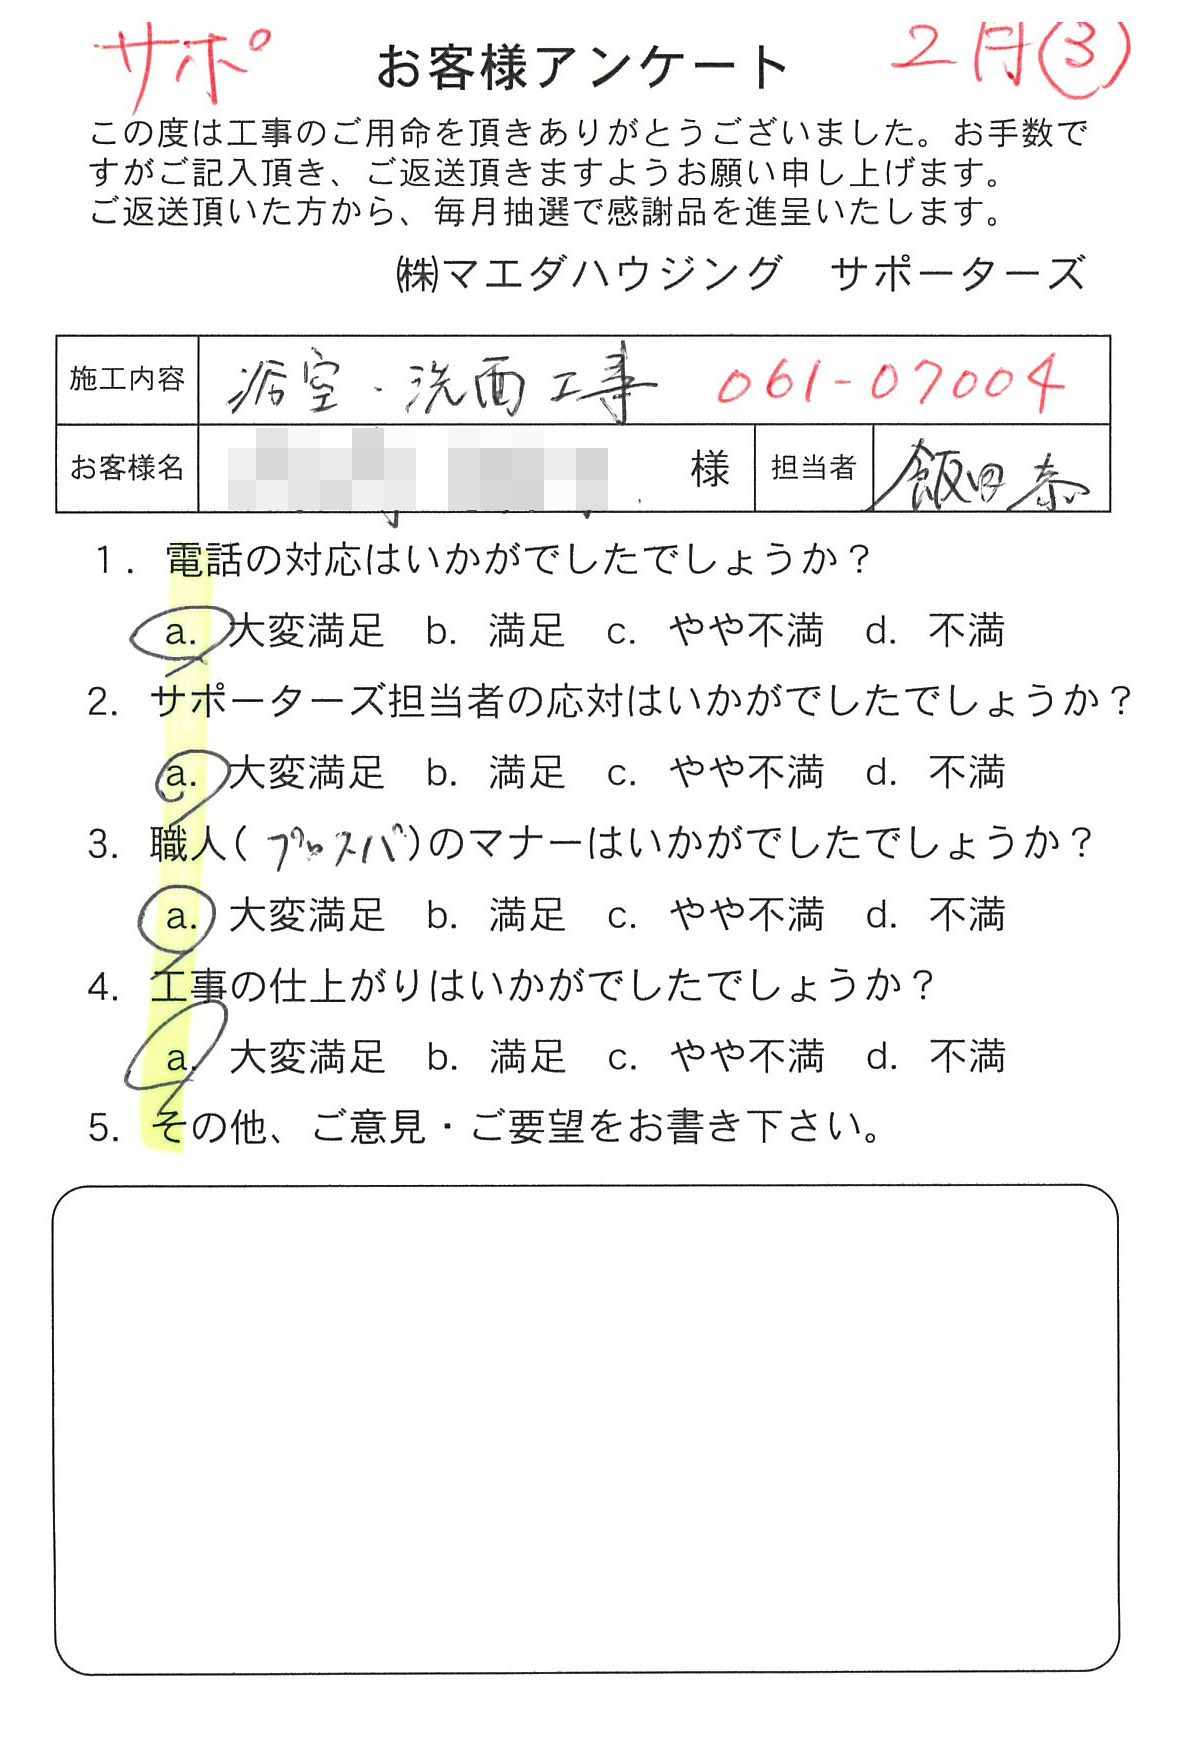 サポ お客様アンケート 2月③
この度は工事のご用命を頂きありがとうございました。お手数で
すがご記入頂き、ご返送頂きますようお願い申し上げます。
ご返送頂いた方から、毎月抽選で感謝品を進呈いたします。
㈱マエダハウジング サポーターズ
施工内容 浴室・洗面工事 061-07004
お客様名 様 担当者 飯田 恭
1. 電話の対応はいかがでしたでしょうか？
a. 大変満足 b. 満足 c. やや不満 d. 不満
2. サポーターズ担当者の応対はいかがでしたでしょうか？
a. 大変満足 b. 満足 c. やや不満 d. 不満
3. 職人(プロスパ)のマナーはいかがでしたでしょうか？
a. 大変満足 b. 満足 c. やや不満 d. 不満
4. 工事の仕上がりはいかがでしたでしょうか？
a. 大変満足 b. 満足 c. やや不満 d. 不満
5. その他、ご意見・ご要望をお書き下さい。